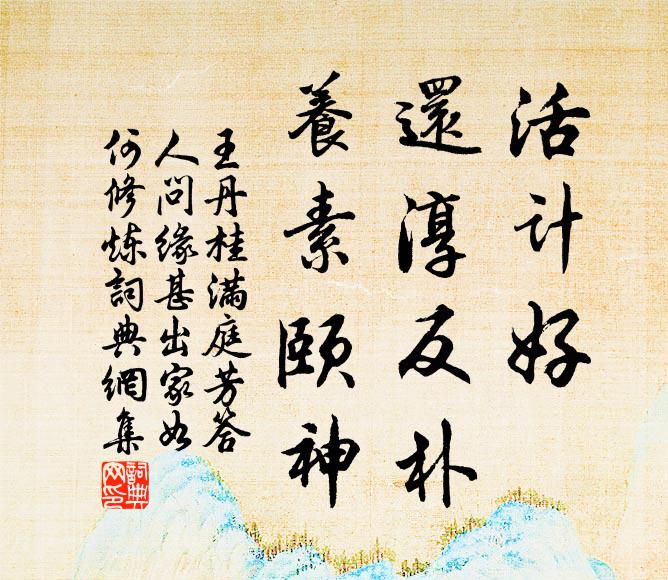 活计好
還淳反朴
養素頤神
王丹桂满庭芳答
人問缘甚出家如
何修炼詞典網集
詞典网印